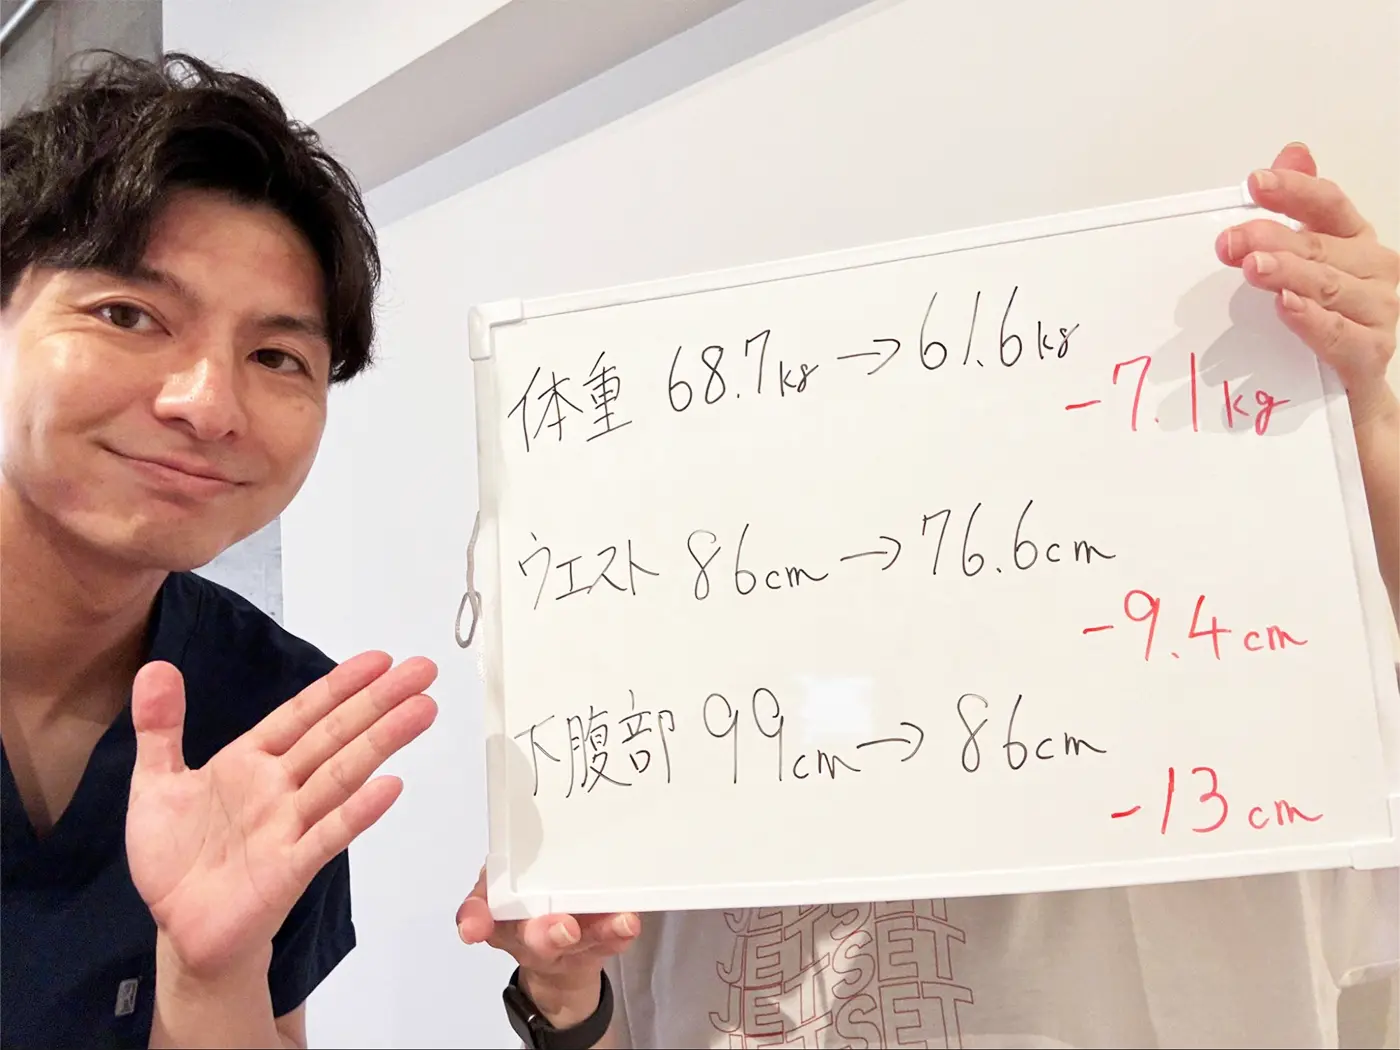 体重 68.7kg→61.6kg
-7.1kg
ウエスト 86cm→76.6cm
-9.4cm
下腹部 99cm→86cm
-13cm
JETSET
JETSET
JETSET
JETSET